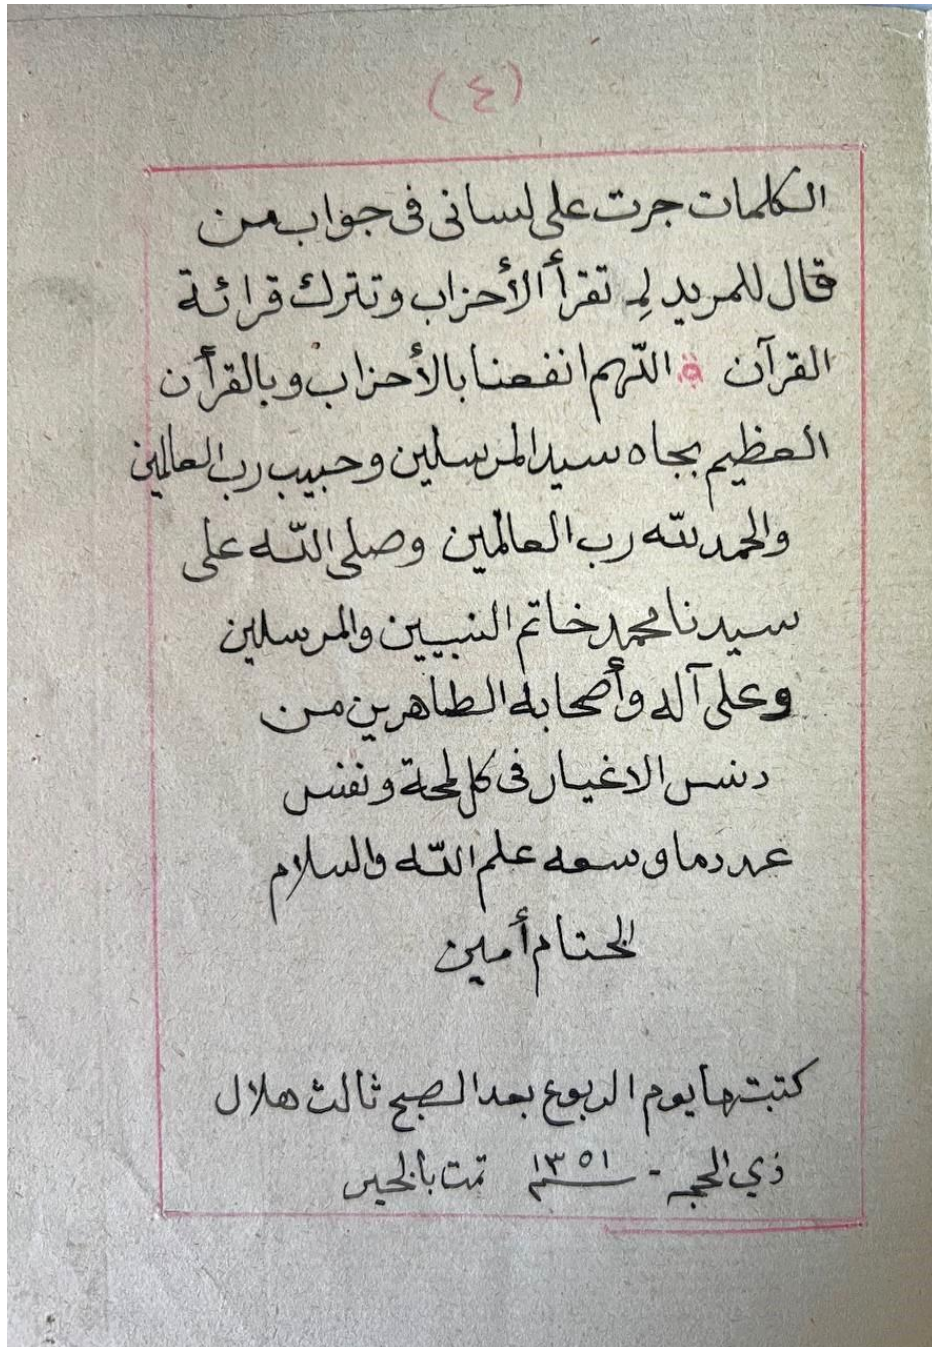 (٤)
الكلمات جرت على لسانى فى جواب من
قال للمريد لِم تقرأ الأحزاب وتترك قرائة
القرآن ة اللّهم انفعنا بالأحزاب وبالقرأن
العظيم بجاه سيد المرسلين وحبيب رب العالمين
والحمد لله رب العالمين وصلى اللّه على
سيدنا محمد خاتم النبيين والمرسلين
وعلى آله وأصحابه الطاهرين من
دنس الاغيار فى كل لمحة ونفس
عدد ما وسعه علم اللّه والسلام
الختام أمين
كتبتها يوم الربوع بعد الصبح ثالث هلال
ذي الحجه - ١٣٥١ تمت بالخير